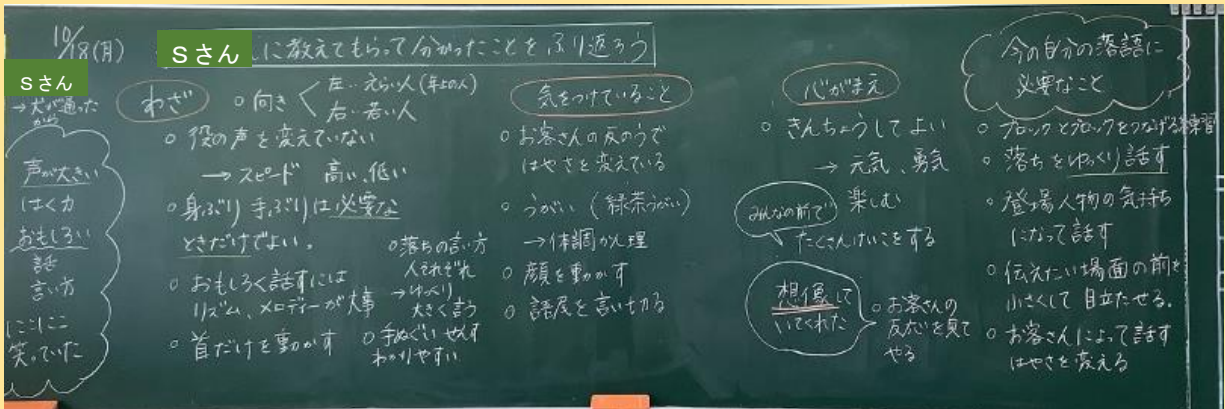 10/18(月)
Sさん
に教えてもらって分かったことをふり返ろう
Sさん
→犬が通った
から
声が大きい
はく力
おもしろい
話
言い方
にこにこ
笑っていた
わざ
○向き
左‥えらい人(年上の人)
右‥若い人
○役の声を変えていない
→スピード 高い、低い
○身ぶり手ぶりは必要な
ときだけでよい。
○おもしろく話すには
リズム、メロディーが大事
○首だけを動かす
○落ちの言い方
人それぞれ
→ゆっくり
大きく言う
○手ぬぐいせんす
わかりやすい
気をつけていること
○お客さんの反のうで
はやさを変えている
○うがい(緑茶うがい)
→体調かん理
○顔を動かす
○語尾を言い切る
心がまえ
○きんちょうしてよい
→元気、勇気
みんなの前で
楽しむ
たくさんけいこをする
想像して
いてくれた
○お客さんの
反応を見て
やる
今の自分の落語に
必要なこと
○ブロックとブロックをつなげる練習
○落ちをゆっくり話す
○登場人物の気持ち
になって話す
○伝えたい場面の前を
小さくして目立たせる。
○お客さんによって話す
はやさを変える